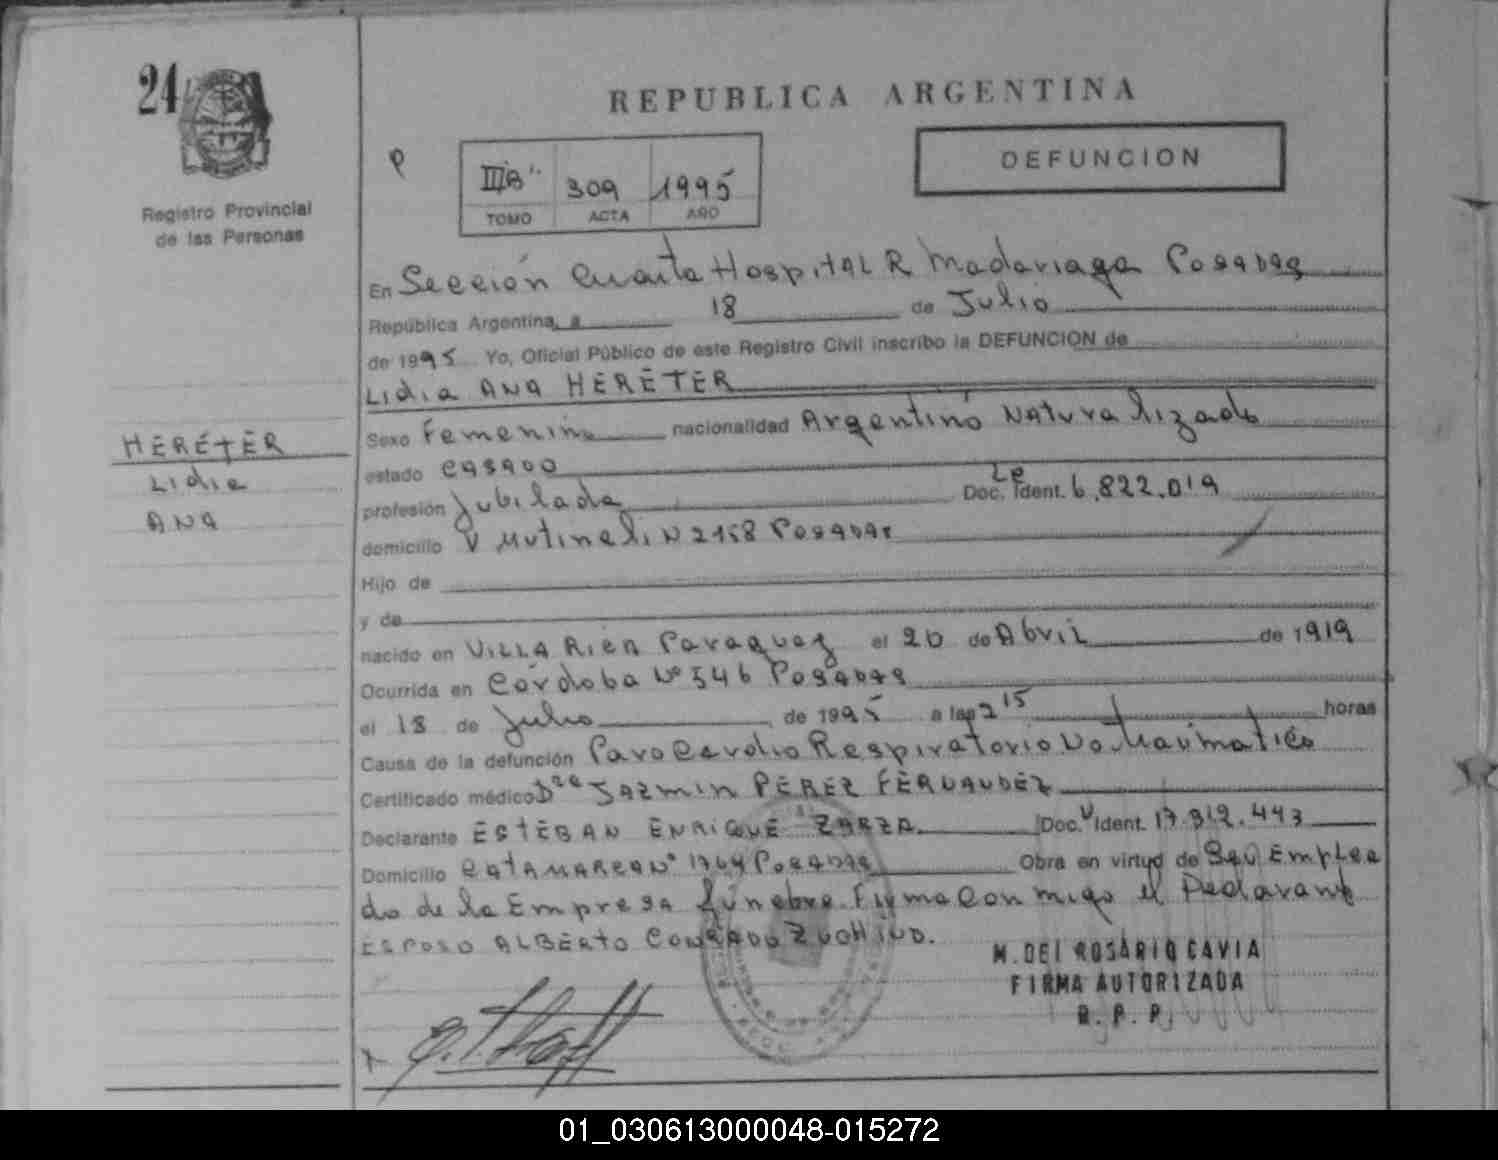 24
REPUBLICA ARGENTINA
DEFUNCION
IIIB" 309 1995
TOMO ACTA AÑO
Registro Provincial
de las Personas
En Sección Cuarta Hospital R Madariaga Posadas
República Argentina, a 18 de Julio
de 1995 Yo, Oficial Público de este Registro Civil inscribo la DEFUNCION de
Lidia ANA HERÉTER
HERÉTER
Lidia
ANA
Sexo Femenino nacionalidad Argentino Naturalizado
estado casado
profesión Jubilada Doc. Ident. Le 6.822.019
domicilio V Mutineli N 2158 Posadas
Hijo de
y de
nacido en VILLA Rien Paraguay el 20 de Abril de 1919
Ocurrida en Córdoba Nº 546 Posadas
el 18 de Julio de 1995 a las 2 15 horas
Causa de la defunción Paro Cardio Respiratorio No traumatico
Certificado médico Dra JAZMIN PEREZ FERNANDEZ
Declarante ESTEBAN ENRIQUE ZARZA Doc. Ident. 17.312.443
Domicilio CATAMARCA Nº 1764 Posadas Obra en virtud de Ser Emplea
do de la Empresa fúnebre. Firma Conmigo el Declarante
Esposo ALBERTO CONRADO
M. DEL ROSARIO CAVIA
FIRMA AUTORIZADA
R. P. P.
01_030613000048-015272